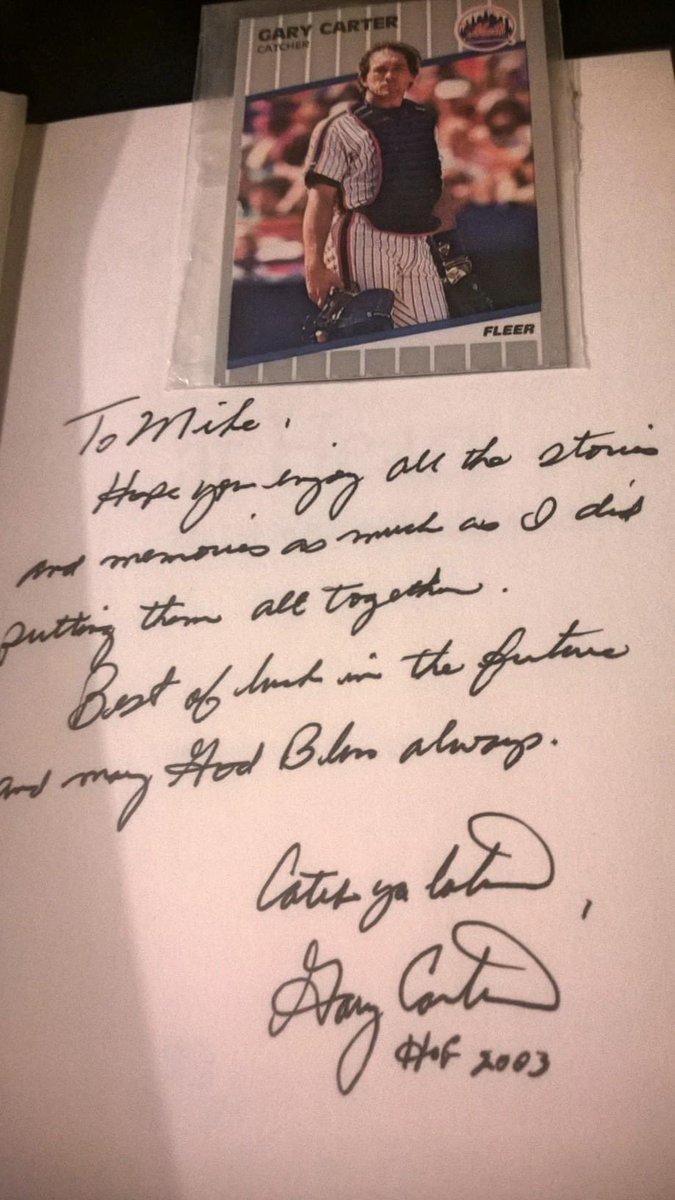 GARY CARTER
CATCHER
FLEER
To Mike,
Hope you enjoy all the stories
and memories as much as I did
putting them all together.
Best of luck in the future
and may God Bless always.
Catch ya later,
Gary Carter
HOF 2003